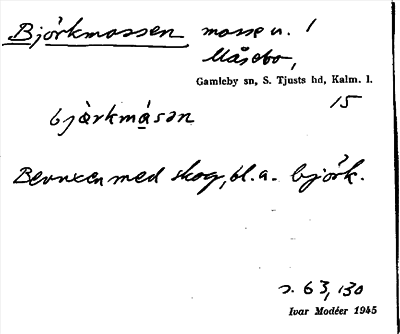 Björkmossen mosse u. 1
Måsebo,
Gamleby sn, S. Tjusts hd, Kalm. l.
15
bjärkmåsan
Bevuxen med skog, bl.a. björk.
s. 63, 130
Ivar Modéer 1945